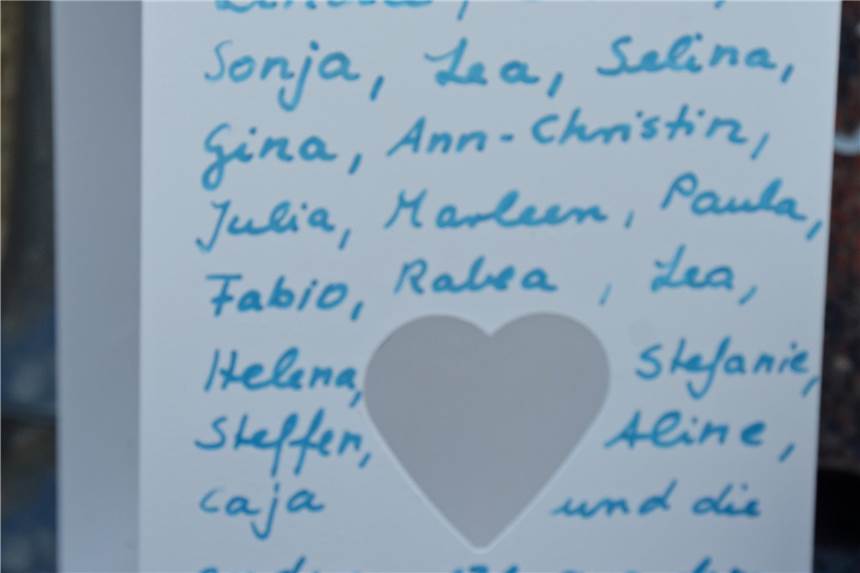 Sonja, Lea, Selina,
Gina, Ann-Christin,
Julia, Marleen, Paula,
Fabio, Rabea, Lea,
Helena, Stefanie,
Steffen, Aline,
Caja und die